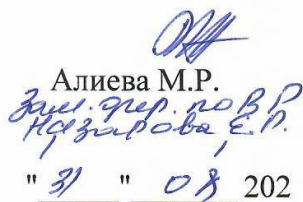 Алиева М.Р.
Зам. дир. по ВР
Назарова Е.П.
" 31 " 08 202